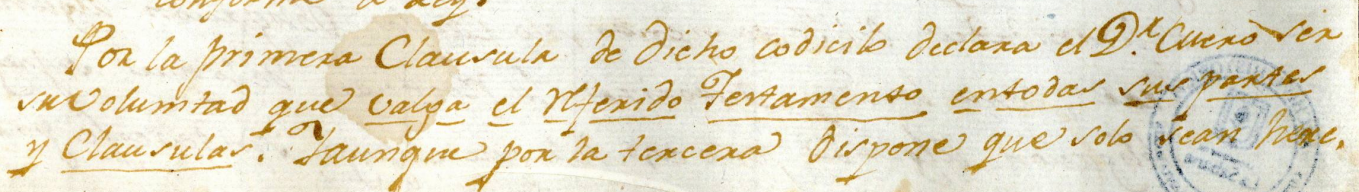 conforme a Ley.
Por la primera Clausula de dicho codicilo declara el D.r Cuero ser
su voluntad que valga el referido Testamento entodas sus partes
y Clausulas. Yaunque por la tercera dispone que solo sean here,